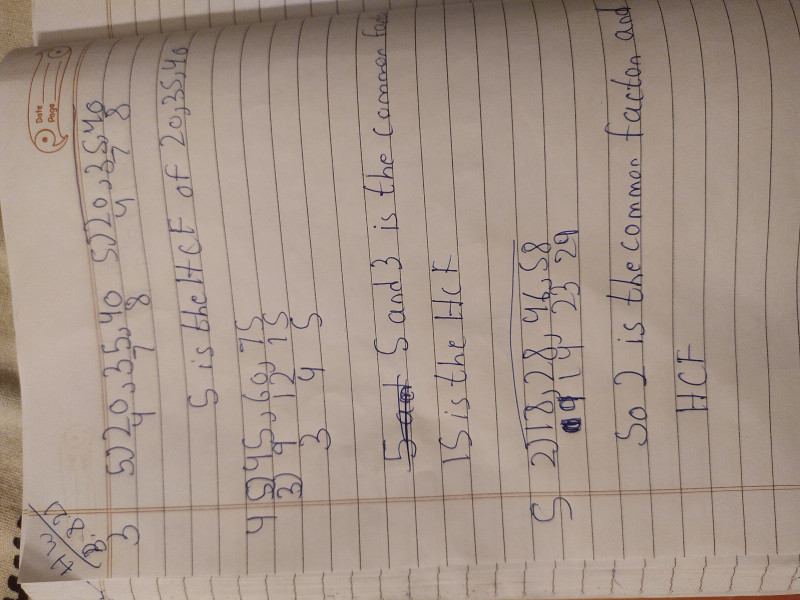 Date
Page
HW
3 5)20,35,40 5)20,35,40
4 7 8 4 7 8
5 is the HCF of 20,35,40
4 5)45,60,75
3)9 12 15
3 4 5
5 and 3 is the common
15 is the HCF
5 2)18,28,46,58
9 14 23 29
So 2 is the common factor and
HCF